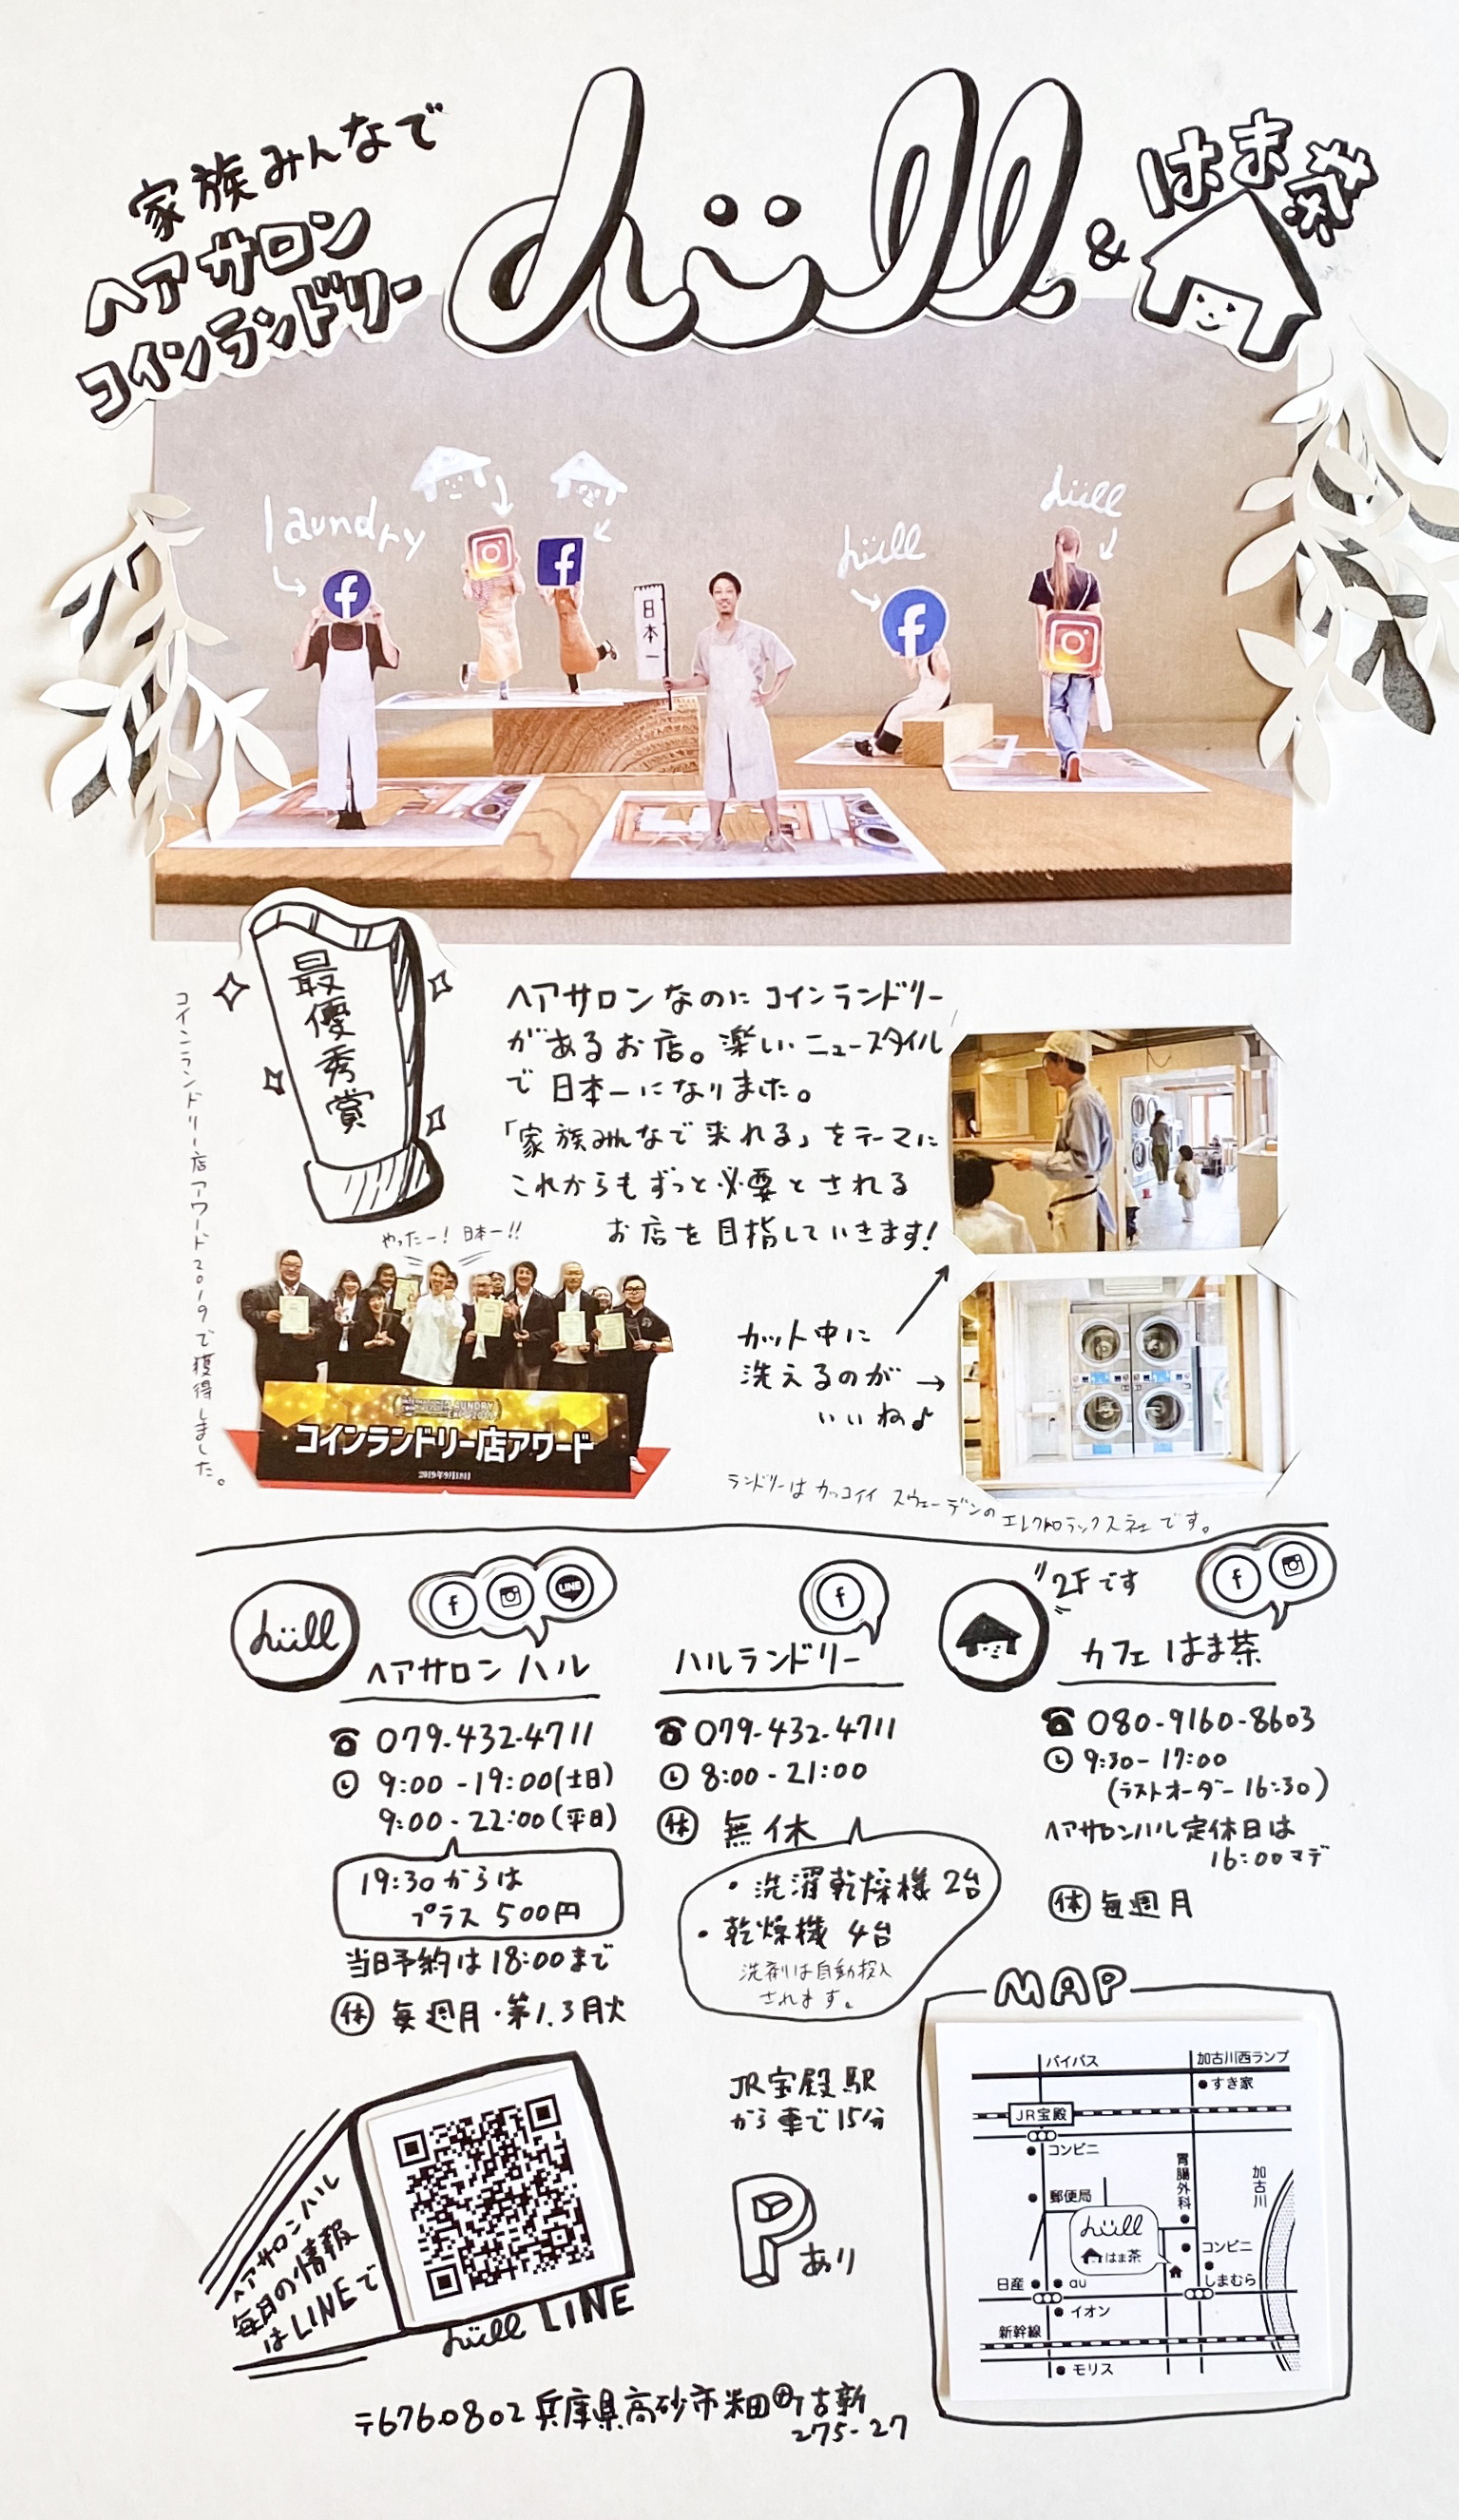 家族みんなで
ヘアサロン
コインランドリー
hüll
&
はま茶
laundry
hüll
hüll
日本一
最優秀賞
コインランドリー店アワード2019で獲得しました。
ヘアサロンなのにコインランドリー
があるお店。楽しいニュースタイル
で日本一になりました。
「家族みんなで来れる」をテーマに
これからもずっと必要とされる
お店を目指していきます!
やったー!日本一!!
コインランドリー店アワード
2019年9月18日
カット中に
洗えるのが
いいね♪
ランドリーはカッコイイスウェーデンのエレクトロラックス社です。
hüll
LINE
ヘアサロン ハル
☎ 079-432-4711
9:00-19:00(土日)
9:00-22:00(平日)
19:30からは
プラス 500円
当日予約は18:00まで
休 毎週月・第1.3月火
ハルランドリー
☎ 079-432-4711
8:00-21:00
休 無休
・洗濯乾燥機 2台
・乾燥機 4台
洗剤は自動投入
されます。
2Fです
カフェ はま茶
☎ 080-9160-8603
9:30-17:00
(ラストオーダー 16:30)
ヘアサロンハル定休日は
16:00マデ
休 毎週月
ヘアサロンハル
毎日の情報
はLINEで
hüll LINE
JR宝殿駅
から車で15分
Pあり
MAP
バイパス
加古川西ランプ
すき家
JR宝殿
コンビニ
胃腸外科
加古川
郵便局
hüll
はま茶
コンビニ
しまむら
日産
au
イオン
新幹線
モリス
〒676-0802 兵庫県高砂市米田町古新
275-27